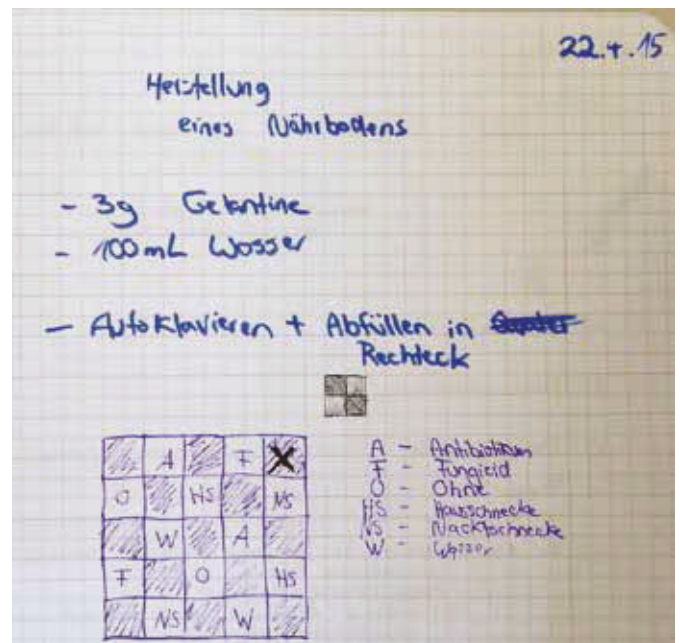 22.4.15
Herstellung
eines Nährbodens
- 3g Gelantine
- 100mL Wasser
- Autoklavieren + Abfüllen in
Rechteck
A F X
O HS NS
W A
F O HS
NS W
A - Antibiotikum
F - Fungizid
O - Ohne
HS - Hausschnecke
NS - Nacktschnecke
W - Wasser